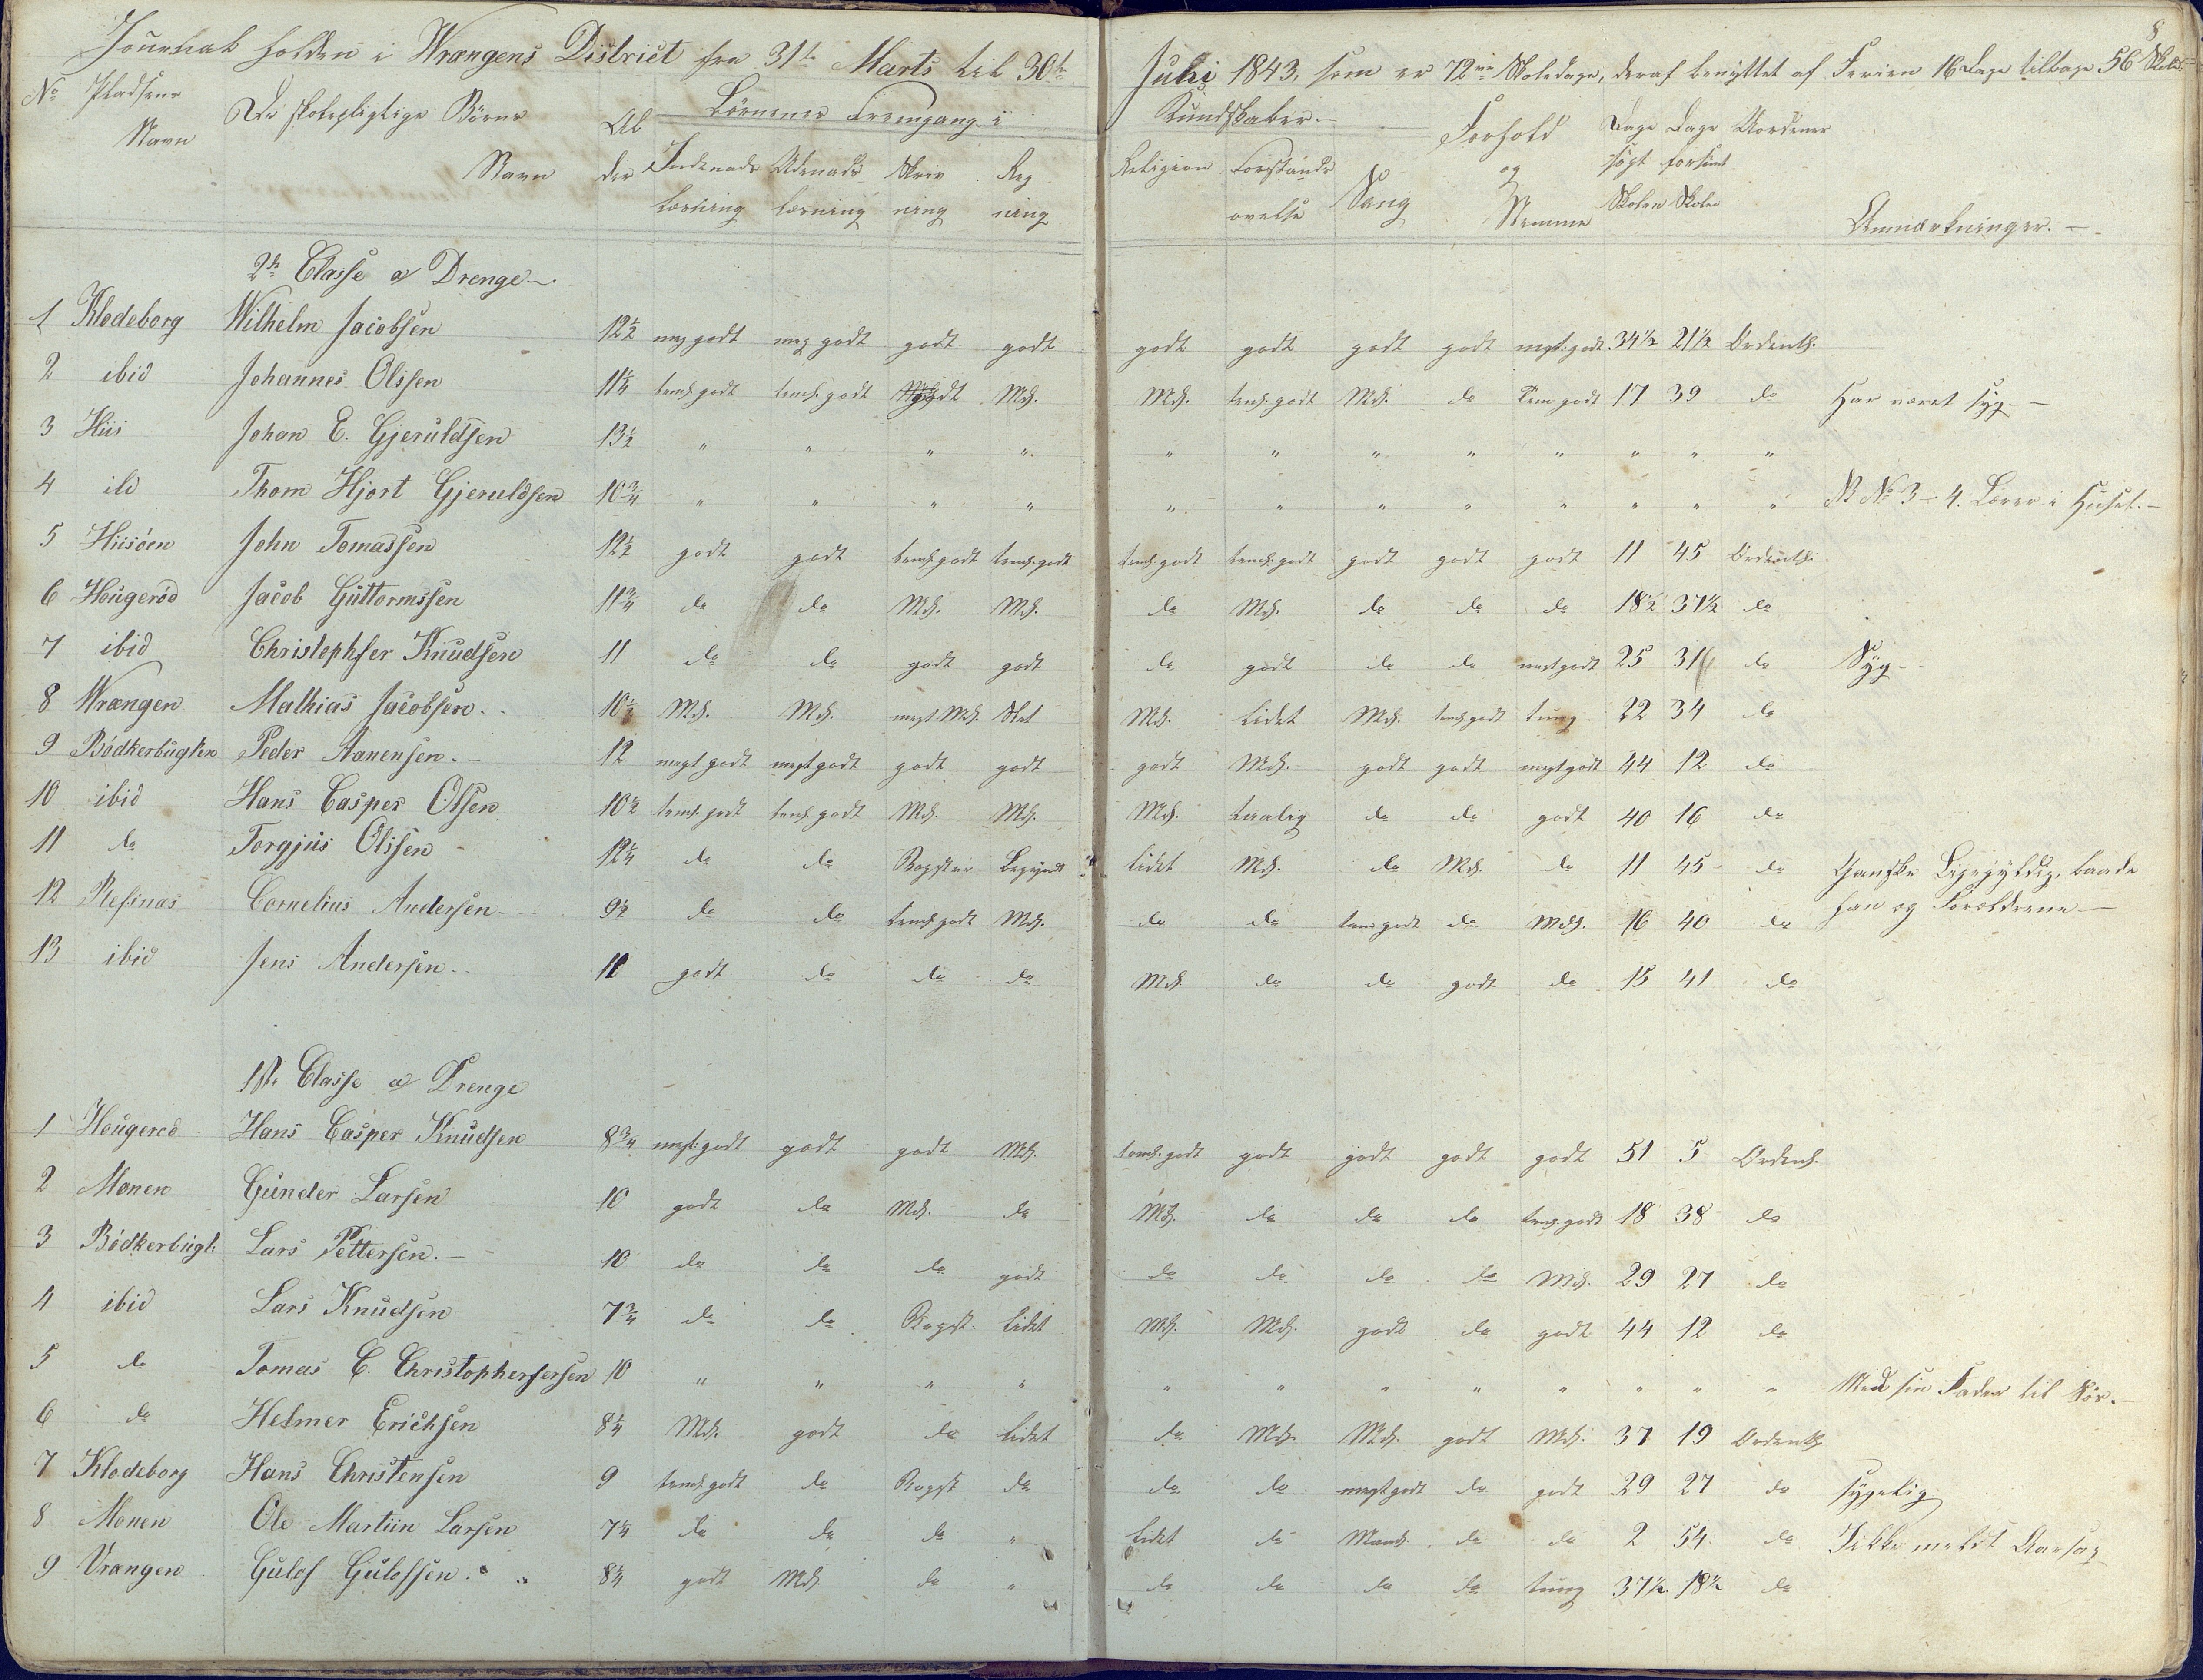 8
Journal holden i Wrængens District fra 31te Marts til 30te Juli 1843, som er 72 Skoledage, deraf benyttet af Ferien 16 Dage tilbage 56 Skoled.
No Pladsens Navn De skolepligtige Børns Navn Alder Børnenes Fremgang i Kundskaber. Forhold og Nemme Dage søgt Skolen Dage forsømt Skolen Anmærkninger.
Indenads Læsning Udenads Læsning Skrivning Regning Religion Forstands øvelse Sang
2de Classe a Drenge
1 Klodeborg Wilhelm Jacobsen 12½ meg godt meg godt godt godt godt godt godt godt megt godt 34½ 21½ Ordentl.
2 ibid Johannes Olssen 11¼ teml. godt teml. godt godt Mdl. Mdl. teml. godt Mdl. do tem godt 17 39 do Har været syg.
3 Hiis Johan E. Gjeruldsen 13½ " " " " " " " " " " " "
4 ibid Thom Hjort Gjeruldsen 10¾ " " " " " " " " " " " " NB No 3 - 4. Lærer i Huset.
5 Hiisöen John Tomassen 12½ godt godt teml. godt teml. godt teml. godt teml. godt godt godt godt 11 45 Ordentl.
6 Hougeröd Jacob Guttormssen 11¾ do do Mdl. Mdl. do Mdl. do do do 18½ 37½ do
7 ibid Christephfer Knudsen 11 do do godt godt do godt do do megt godt 25 31 do Syg
8 Wrængen Mathias Jacobsen 10½ Mdl. Mdl. megt Mdl. Slet Mdl. Lidet Mdl. teml. godt tung 22 34 do
9 Bödkerbugten Peder Aanensen. 12 megt godt megt godt godt godt godt Mdl. godt godt megt godt 44 12 do
10 ibid Hans Casper Olsen 10½ teml. godt teml. godt Mdl. Mdl. Mdl. taalig do do godt 40 16 do
11 do Torgjus Olssen 12¼ do do Bogster Begyndt lidet Mdl. do Mdl. do 11 45 do Ganske Ligegyldig, baade
12 Refsnæs Cornelius Andersen 9½ do do teml. godt Mdl. do do tem godt do Mdl. 16 40 do han og Forældrene
13 ibid Jens Andersen 11 godt do do do Mdl. do do godt do 15 41 do
1ste Classe a Drenge
1 Hougeröd Hans Casper Knudsen 8¾ megt godt godt godt Mdl. teml. godt godt godt godt godt 51 5 Ordentl.
2 Monen Gunder Larsen 10 godt do Mdl. do Mdl. do do do teml. godt 18 38 do
3 Bödkerbugt. Lars Pettersen. 10 do do do godt do do do do Mdl. 29 27 do
4 ibid Lars Knudsen 7¾ do do Bogst. Lidet Mdl. Mdl. godt do godt 44 12 do
5 do Tomas C. Christophersersen 10 " " " " " " " " " " " " Med sin Fader til Søs.
6 do Helmer Erichsen 8¼ Mdl. godt do lidet do Mdl. Mdl. godt Mdl. 37 19 Ordentl.
7 Klodeborg Hans Christensen 9 teml. godt do Bogst do do do megt godt do godt 29 27 do sygelig
8 Monen Ole Martiin Larsen 7¼ do do do " lidet do Maadl. do do 2 54 do Ikke meldt Aarsag
9 Vrangen Gulof Gulofsen. 8¼ godt Mdl. do " do do do do tung 37½ 18½ do